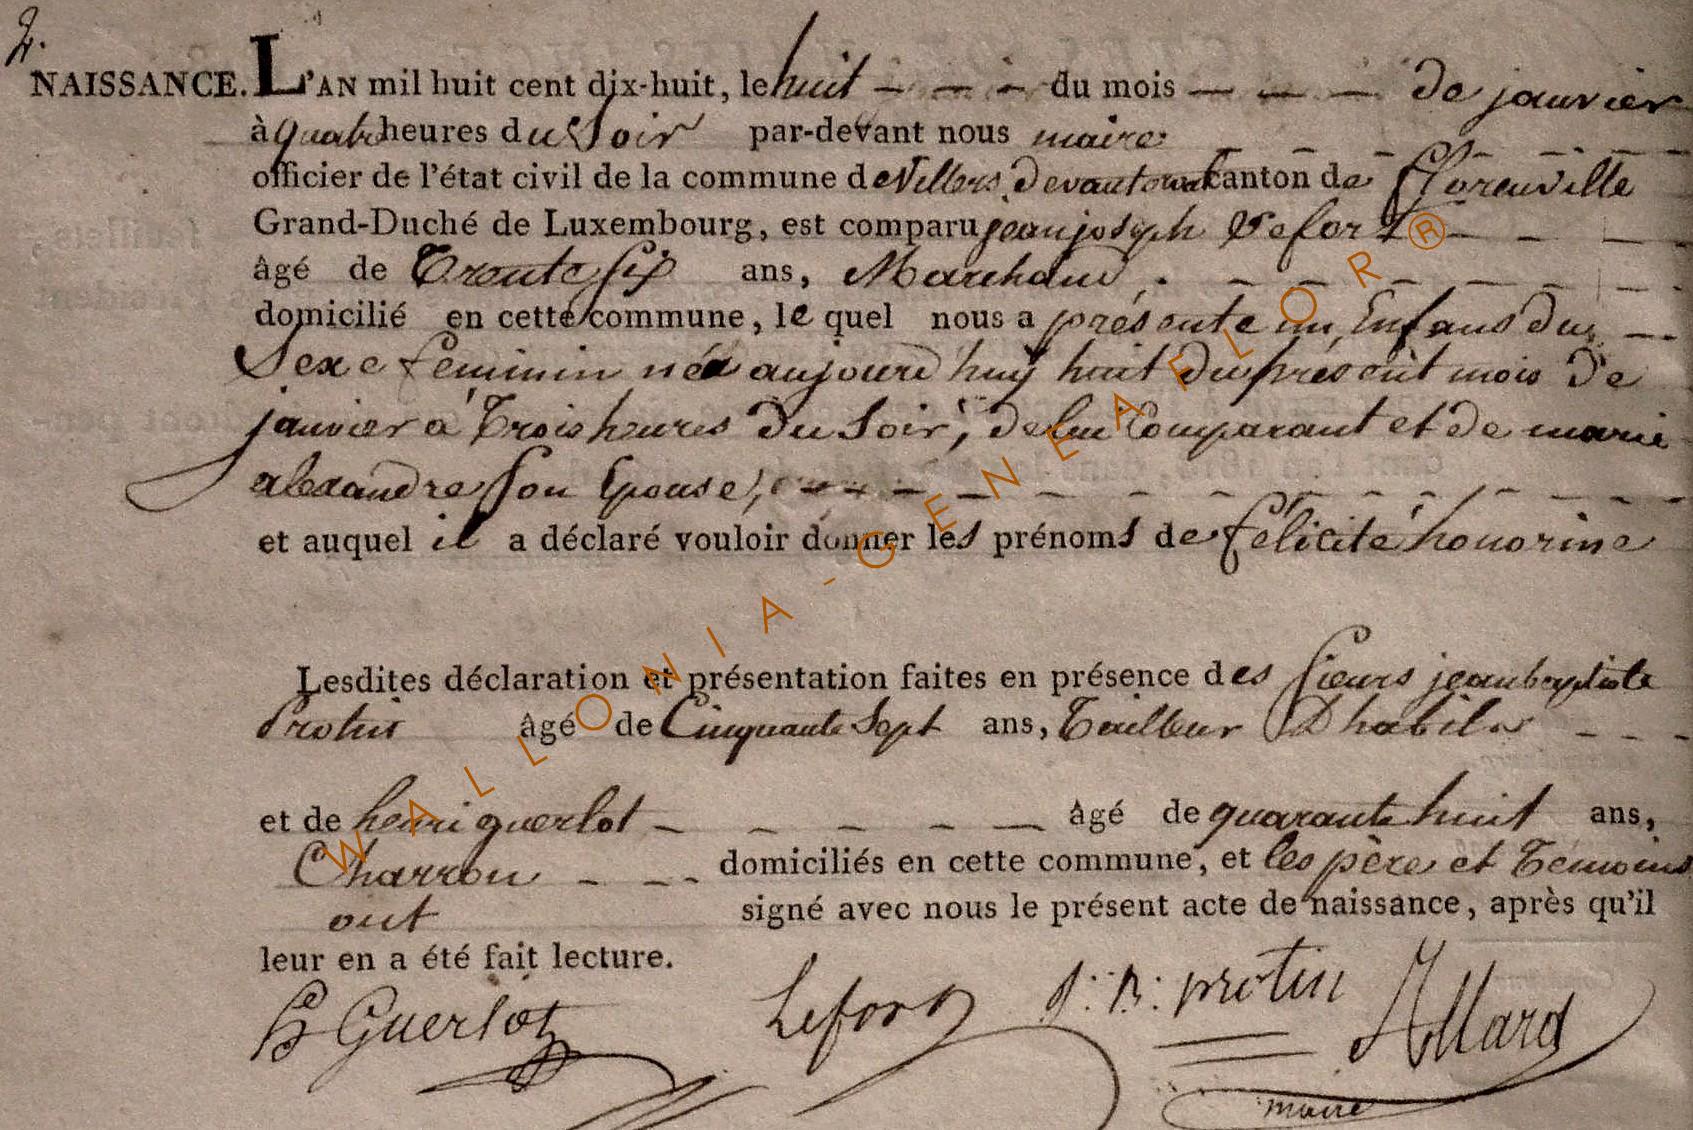 2.
NAISSANCE. L'AN mil huit cent dix-huit, le huit - - - du mois - - - de janvier
à quatre heures du Soir par-devant nous maire
officier de l'état civil de la commune de Villers devant orval canton de florenville
Grand-Duché de Luxembourg, est comparu jean joseph Lefort
âgé de Trente Six ans, Marchand,
domicilié en cette commune, le quel nous a présenté un Enfans du
Sexe feminin née aujourd'huy huit du présent mois de
janvier à Trois heures du Soir, de lui Comparant et de marie
alexandre Son Epouse,
et auquel il a déclaré vouloir donner les prénoms de félicité honorine
Lesdites déclaration et présentation faites en présence des Sieurs jean baptiste
Protin âgé de Cinquante Sept ans, Tailleur D'habits
et de henri guerlot âgé de quarante huit ans,
Charron domiciliés en cette commune, et les père et Témoins
ont signé avec nous le présent acte de naissance, après qu'il
leur en a été fait lecture.
H Guerlot Lefort J: B: protin Allard
maire
WALLONIA-GENEAFLOR®